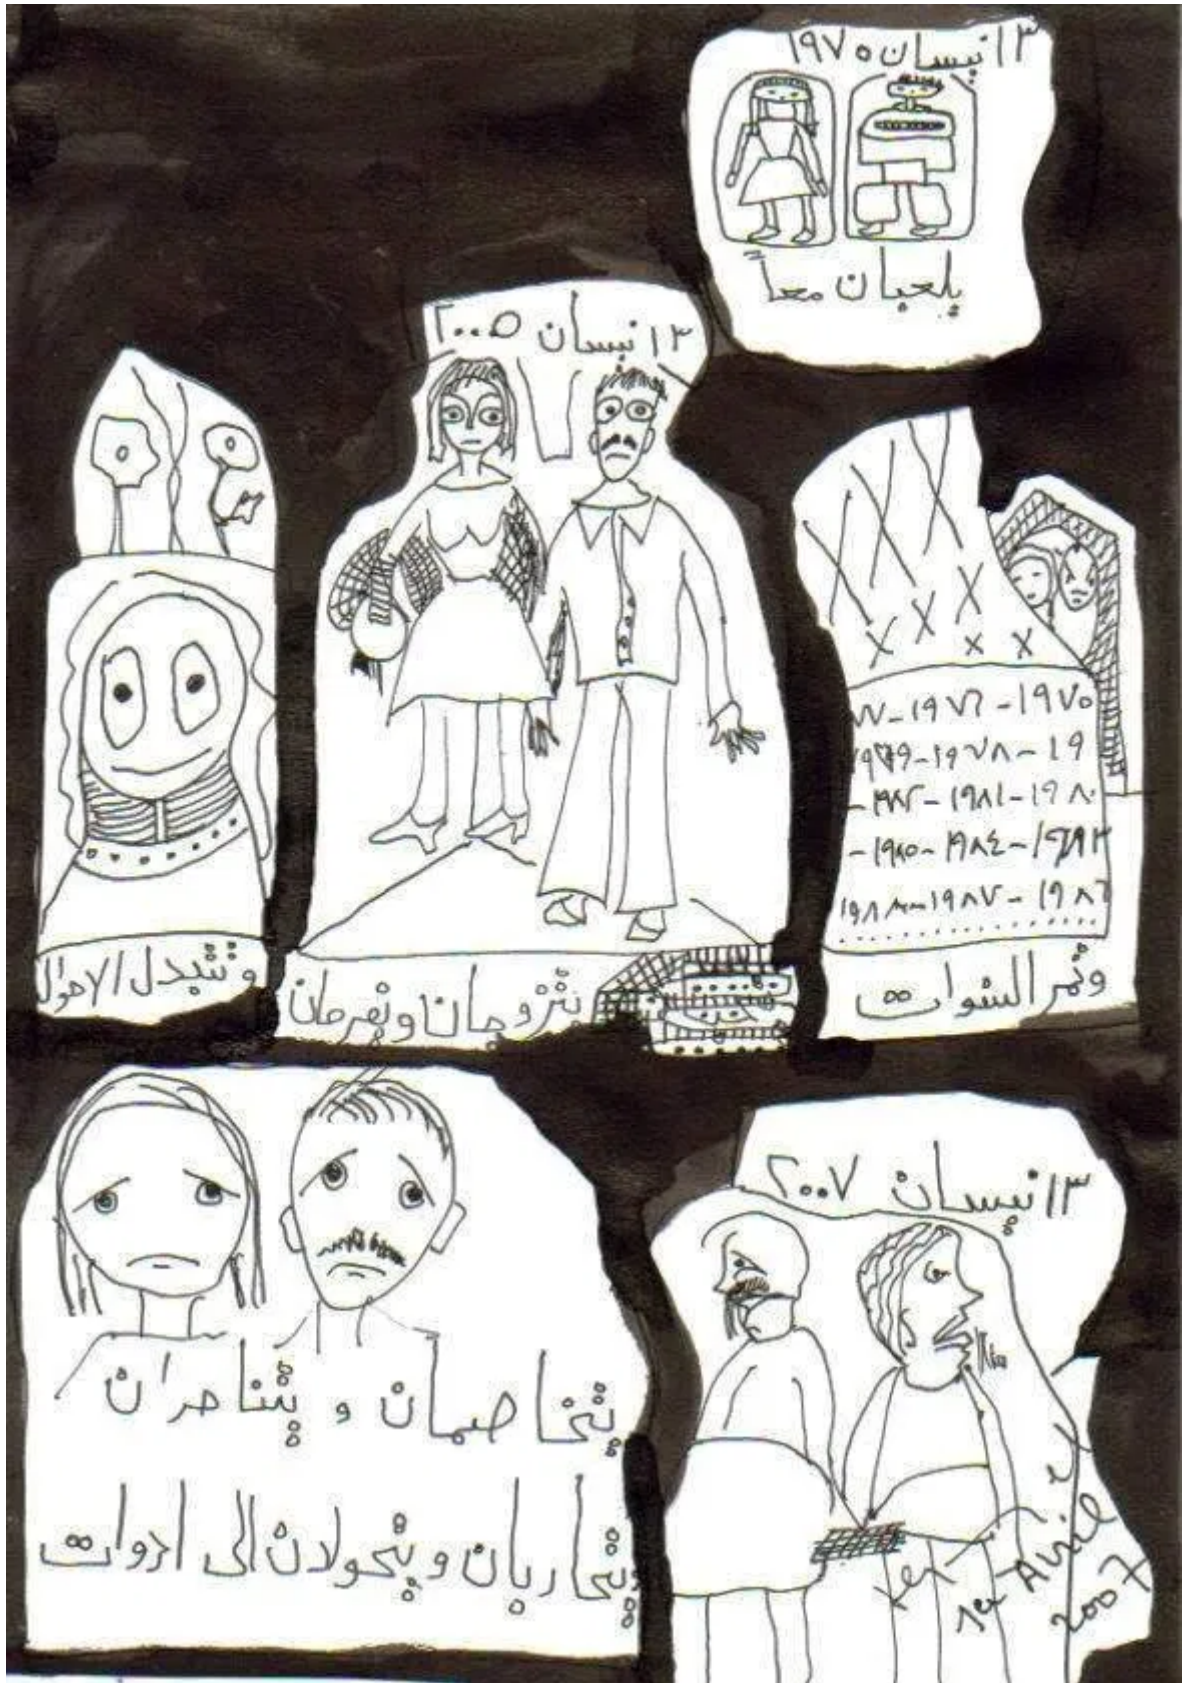 ١٣ نيسان ١٩٧٥
يلعبان معاً
١٩٧٥ - ١٩٧٦ - ٧٧
١٩ - ١٩٧٨ - ١٩٧٩
١٩٨٠ - ١٩٨١ - ١٩٨٢ -
١٩٨٣ - ١٩٨٤ - ١٩٨٥ -
١٩٨٦ - ١٩٨٧ - ١٩٨٨
وتمر السنوات
١٣ نيسان ٢٠٠٥
يتزوجان ويفرحان
وتتبدل الاحوال
١٣ نيسان ٢٠٠٧
1er Avril
2007
يتخاصمان و يتناحران
يتحاربان و يتحولان الى ادوات